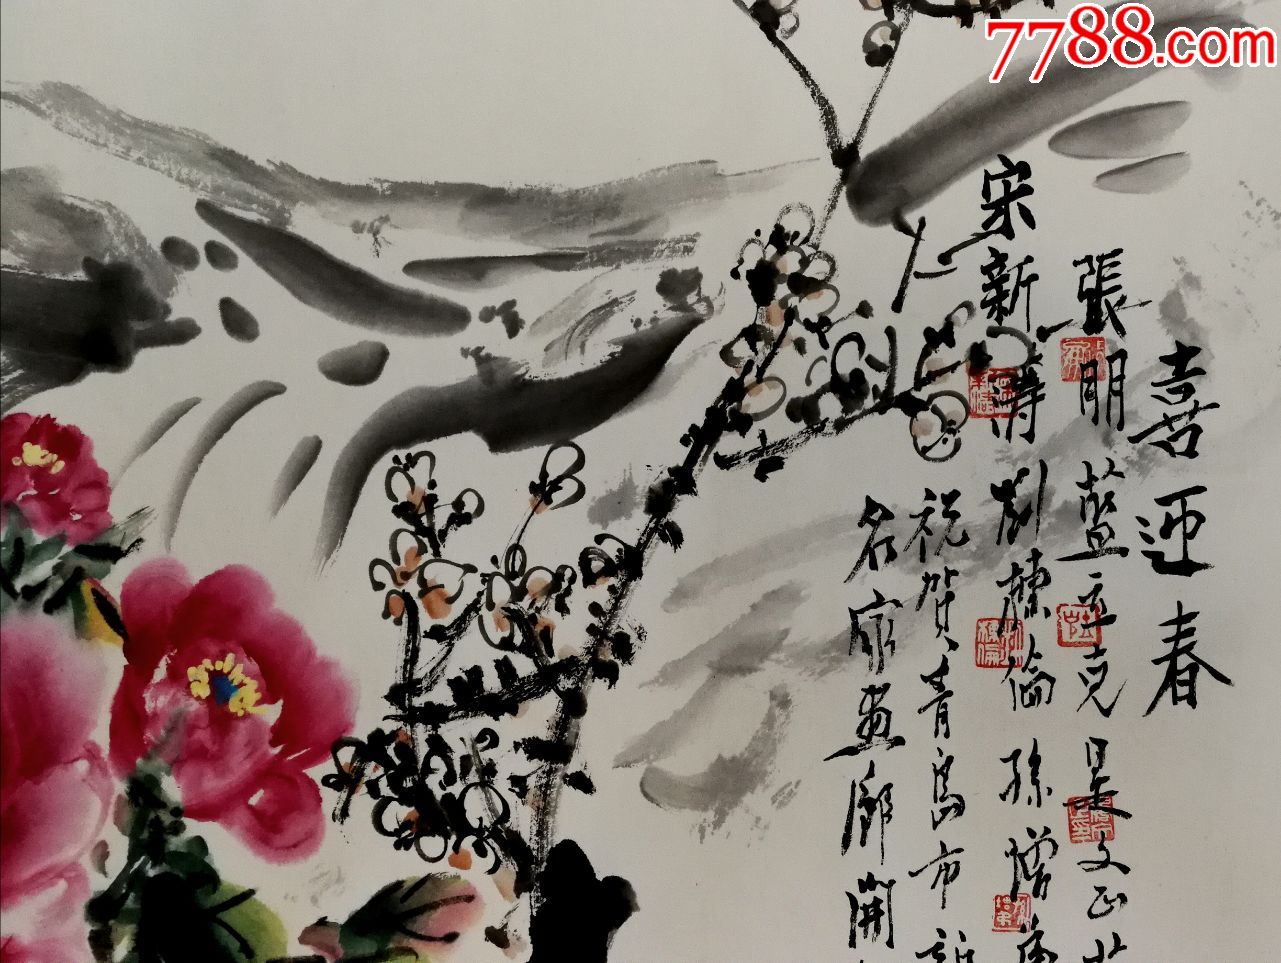 7788.com
喜迎春
張朋 藍立克 吴文正
宋新濤 劉棟倫 孫增
祝贺青島市
名家畫廊開